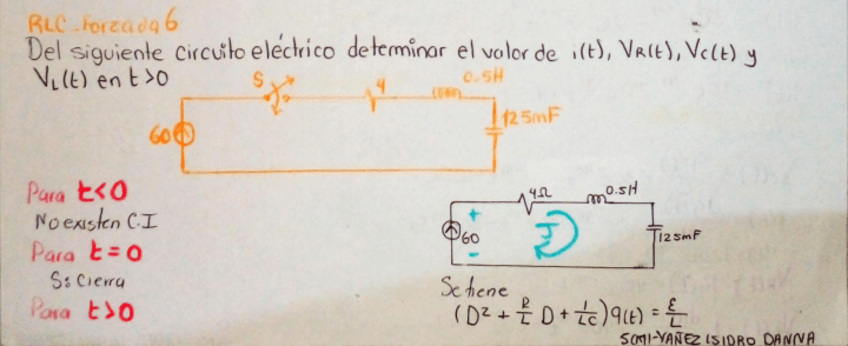 RLC-Forzada 6
Del siguiente circuito eléctrico determinar el valor de i(t), VR(t), Vc(t) y
VL(t) en t>0
S 4 0.5H
60 125mF
Para t<0
No existen C.I
Para t=0
S: Cierra
Para t>0
4Ω 0.5H
+
60 125mF
-
Se tiene
(D² + R/L D + 1/LC) q(t) = E/L
5CM1-YAÑEZ ISIDRO DANNA